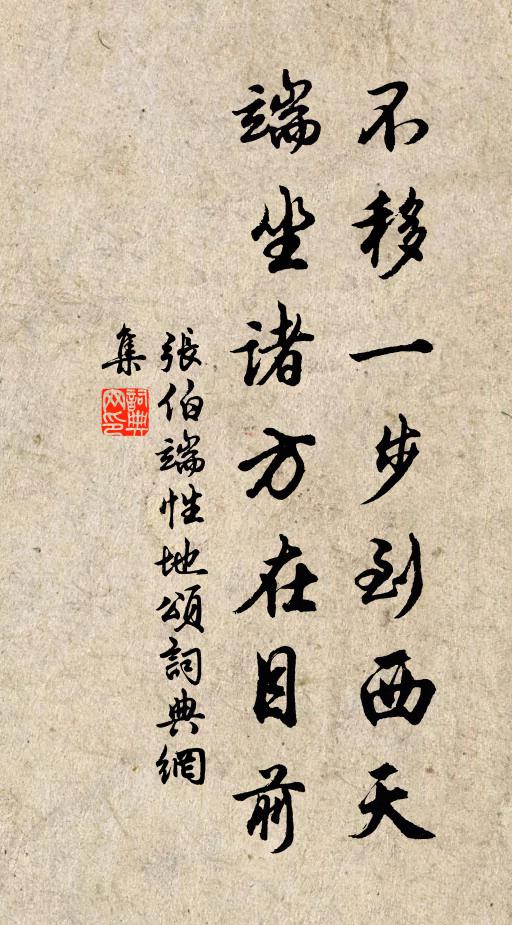 不移一步到西天
端坐诸方在目前
張伯端性地頌詞典網
集
詞典
网印